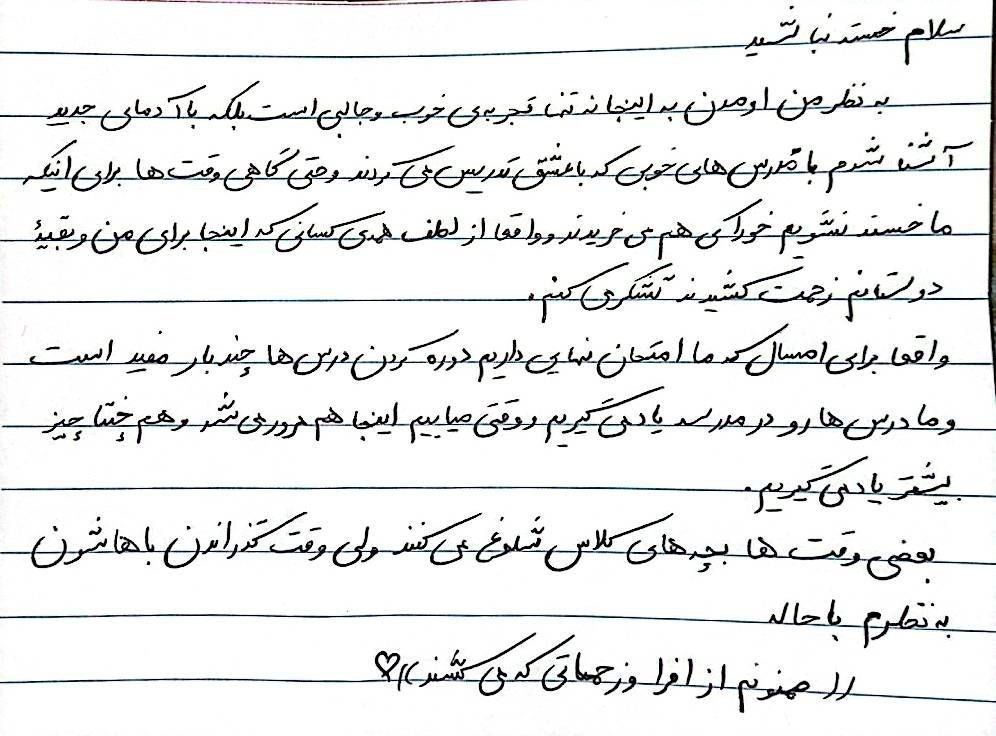 سلام خسته نباشید
به نظر من اومدن به اینجا نه تنها تجربه‌ی خوب و جالبی است بلکه با آدمای جدید
آشنا شدم با مدرس های خوبی که با عشق تدریس می کردند و حتی گاهی وقت ها برای اینکه
ما خسته نشویم خوراکی هم می خریدند و واقعا از لطف همه‌ی کسانی که اینجا برای من و بقیهٔ
دوستانم زحمت کشیدند تشکر می کنم.
واقعا برای امسال که ما امتحان نهایی داریم دوره کردن درس ها چند بار مفید است
و ما درس ها رو در مدرسه یاد می گیریم و وقتی میاییم اینجا هم مرور می شه و هم چند تا چیز
بیشتر یاد می گیریم.
بعضی وقت ها بچه های کلاس شلوغ می کنند ولی وقت گذراندن باهاشون
به نظرم باحاله
((ممنونم از افرا و زحماتی که می کشند))♡